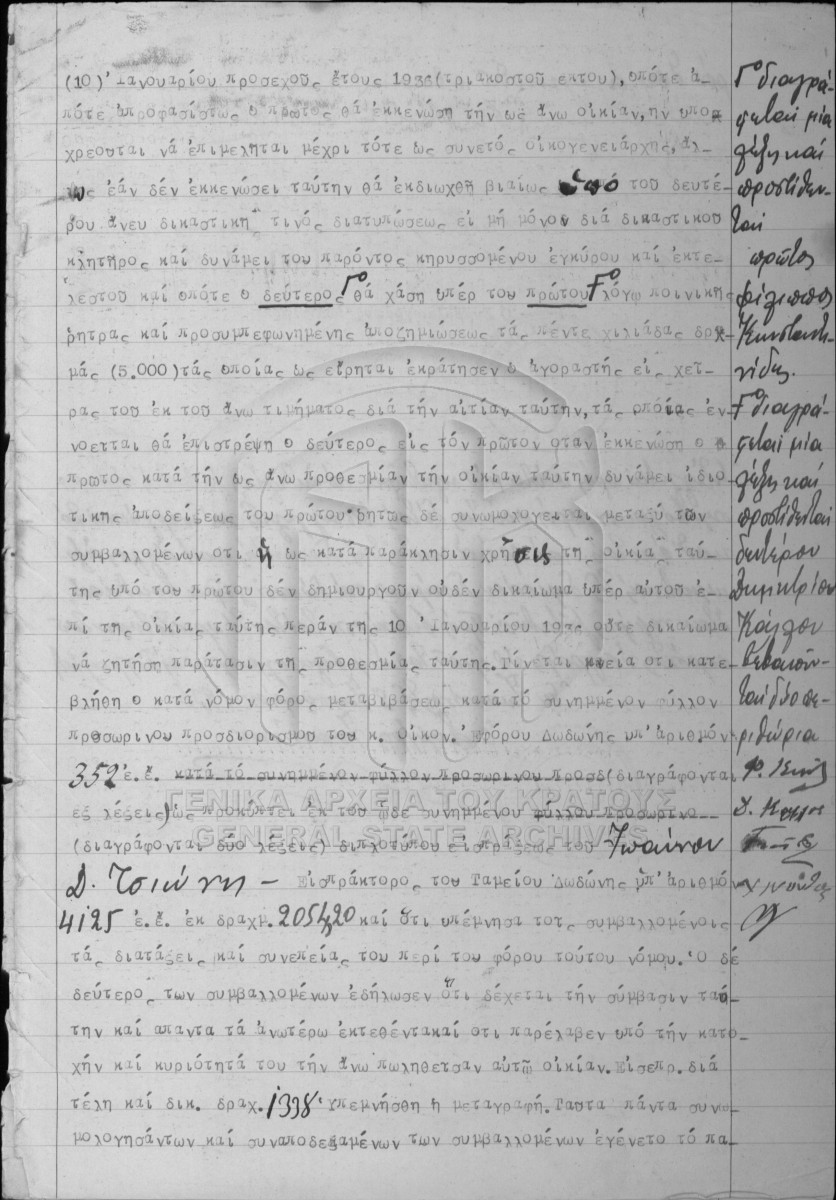 (10)' Ιανουαρίου προσεχοῦς ἔτους 1936(τριακοστοῦ εκτου), ὁπότε ἀ-
πότε ἀπροφασίστως ο πρῶτος θά ἐκκενώση τήν ὡς ἄνω οἰκίαν, ην υπο
χρεουται νά ἐπιμελῆται μέχρι τότε ὡς συνετός οἰκογενειάρχης, ἀλ-
ως ἐάν δέν ἐκκενώσει ταύτην θά ἐκδιωχθῆ βιαίως ὑπό τοῦ δευτέ-
ρου ἄνευ δικαστικῆς τινός διατυπώσεως εἰ μή μόνον διά δικαστικοῦ
κλητῆρος καί δυνάμει του παρόντος κηρυσσομένου ἐγκύρου καί ἐκτε-
λεστοῦ καί ὁπότε ο δεύτερος Γο θά χάση ὑπέρ του πρώτου Γο λόγω ποινικῆς
ρητρας καί προσυμπεφωνημένης ἀποζημιώσεως τάς πέντε χιλιάδας δρχ-
μάς (5.000)τάς ὁποίας ὡς εἴρηται ἐκράτησεν ὁ ἀγοραστής εἰς χεῖ-
ρας του ἐκ του ἄνω τιμήματος διά τήν αἰτίαν ταύτην, τάς ὁποίας ἐν-
νοειται θά ἐπιστρέψη ο δεύτερος εἰς τόν πρῶτον οταν ἐκκενώση ο
πρωτος κατά τήν ως ἄνω προθεσμίαν τήν οἰκίαν ταύτην δυνάμει ἰδιω
τικης ἀποδείξεως του πρώτου ῥητῶς δέ συνωμολογειται μεταξύ τῶν
συμβαλλομένων οτι ἡ ως κατά παράκλησιν χρῆσις τῆς οἰκίας ταύ-
της ὑπό του πρώτου δέν δημιουργοῦν οὐδέν δικαίωμα ὑπέρ αὐτοῦ ἐ-
πί της οἰκίας ταύτης περάν της 10 'Ιανουαρίου 1936 οὔτε δικαίωμα
νά ζητήση παράτασιν τῆς προθεσμίας ταύτης. Γίνεται μνεία οτι κατε-
βλήθη ο κατά νόμον φόρος μεταβιβάσεως κατά τό συνημμένον φύλλον
προσωρινου προσδιορισμου του κ. Οἰκον. 'Εφόρου Δωδώνης ὑπ'ἀριθμόν
352 ἐ.ἔ. κατά τό συνημμένον φύλλον προσωρινου προσδ(διαγράφονται
εξ λέξεις)ὡς προκύπτει ἐκ του ὧδε συνημμένου φύλλου προσωρινο
(διαγράφονται δύο λέξεις) διπλοτύπου εἰσπράξεως του Ἰωάννου
Δ. Τσιώνη – Εἰσπράκτορος του Ταμείου Δωδώνης ὑπ'ἀριθμόν
4125 ἐ.ἔ. ἐκ δραχμ. καί ὅτι ὑπέμνησα τοῖς συμβαλλομένοις
τάς διατάξεις καί συνεπείας του περί του φόρου τούτου νόμου. 'Ο δέ
δεύτερος των συμβαλλομένων ἐδήλωσεν ὅτι δέχεται τήν σύμβασιν ταύ-
την καί απαντα τά ἀνωτέρω ἐκτεθέντακαί οτι παρέλαβεν ὑπό τήν κατο-
χήν καί κυριότητά του τήν ἄνω πωληθεισαν αὐτῶ οἰκίαν. Εἰσεπρ. διά
τέλη καί δικ. δραχ. 1338. Ὑπεμνήσθη ἡ μεταγραφή. Ταυτα πάντα συνω-
μολογησάντων καί συναποδεξαμένων των συμβαλλομένων ἐγένετο τό πα-
Γο διαγρά-
φεται μία
λέξη καί
προστίθεν-
ται
πρῶτος
Φίλιππος
Κωνσταντι-
νίδης.
Γο διαγρά-
φεται μία
λέξη καί
προστίθεται
δευτέρου
Δημητρίου
βεβαιοῦν-
ται δύο πε-
ριθώρια
ΓΕΝΙΚΑ ΑΡΧΕΙΑ ΤΟΥ ΚΡΑΤΟΥΣ
GENERAL STATE ARCHIVES